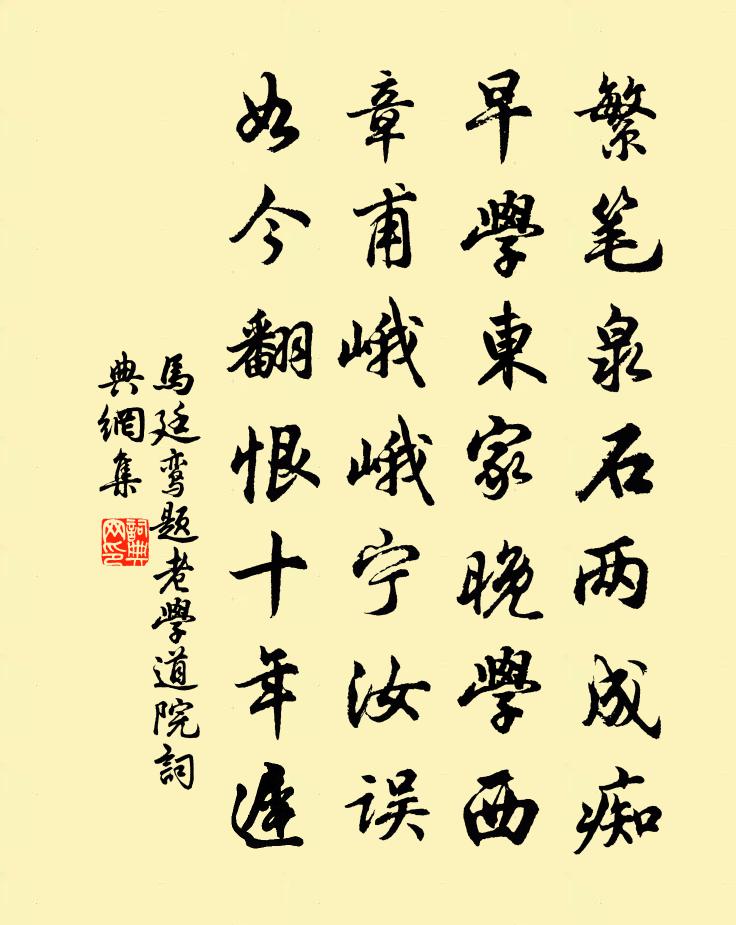 繁笔泉石两成痴
早學東家晚學西
章甫峨峨宁汝误
如今翻恨十年遲
馬廷鸾題老學道院詞
典網集
詞典
网印